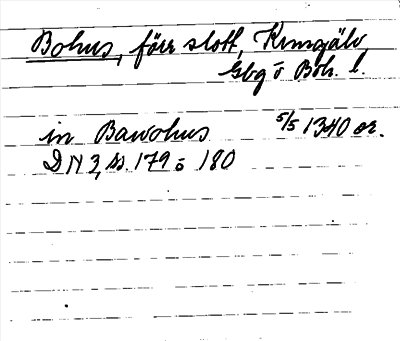 Bohus, förr slott, Kungälv,
Gbg o Boh. l.
in Bawohus 5/5 1340 or.
DN 3, ss. 179 o 180